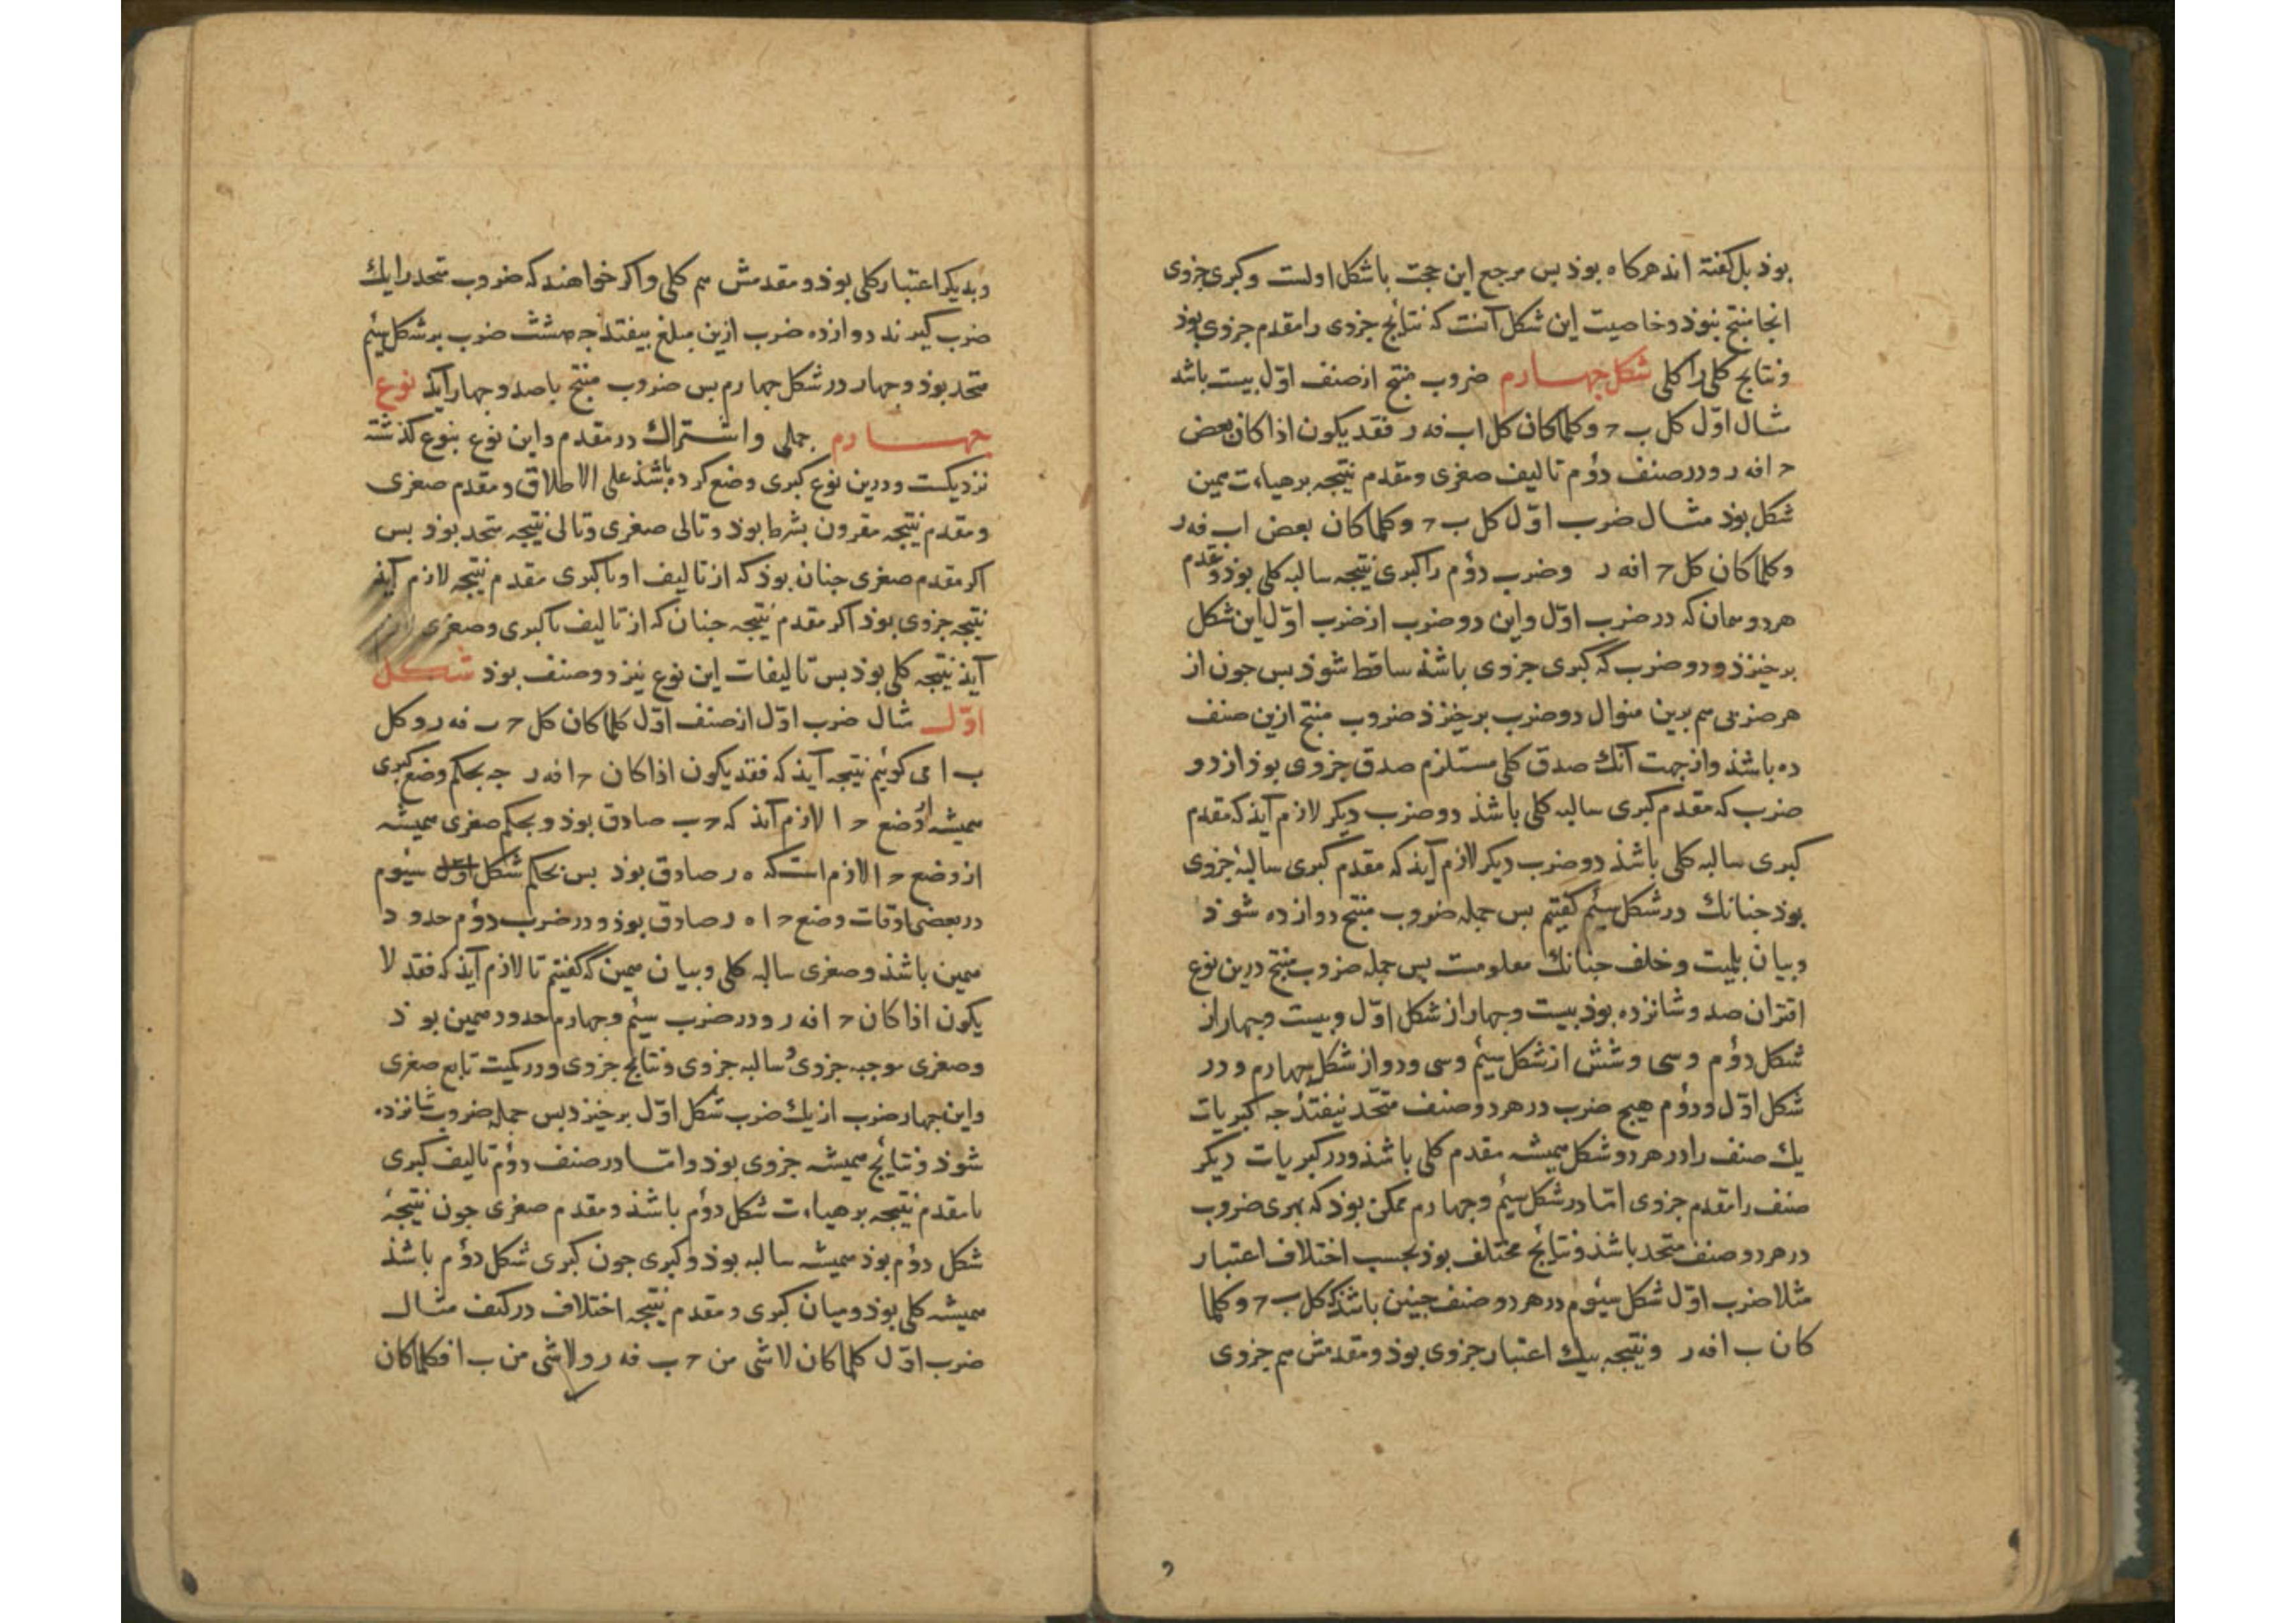 بوذ بل کفته اند هرکاه بوذ بس مرجع این حجت باشکل اولست وکبری جزوی
انجا منتج نبوذ وخاصیت این شکل آنست که نتائج جزوی را مقدم جزوی بوذ
ونتایج کلی را کلی شکل جهارم ضروب منتج ازصنف اوّل بیست باشد
مثال اوّل کل ب ح وکلما کان کل اب فه ر فقد یکون اذا کان بعض
ح ا فه ر ودر صنف دوُم تالیف صغری ومقدم نتیجه برهیاءت همین
شکل بوذ مثال ضرب اوّل کل ب ح وکلما کان بعض اب فه ر
وکلما کان کل ح ا فه ر وضرب دوُم را کبری نتیجه سالبه کلی بوذ ومقدم
هردو همان که در ضرب اوّل واین دو ضرب از ضرب اوّل این شکل
برخیزذ ودو ضرب که کبری جزوی باشذ ساقط شوذ بس جون از
هر ضربی هم برین منوال دو ضرب برخیزذ ضروب منتج ازین صنف
ده باشذ واز جهت آنک صدق کلی مستلزم صدق جزوی بوذ از دو
ضرب که مقدم کبری سالبه کلی باشذ دو ضرب دیکر لازم آیذ که مقدم
کبری سالبه کلی باشذ دو ضرب دیکر لازم آیذ که مقدم کبری سالبهٔ جزوی
بوذ جنانک در شکل سیُم کفتیم بس جمله ضروب منتج دوازده شوذ
وبیان بلمیت وخلف جنانک معلومست بس جمله ضروب منتج درین نوع
اقتران صد وشانزده بوذ بیست وجهار از شکل اوّل وبیست وجهار از
شکل دوُم وسی وشش از شکل سیُم وسی ودو از شکل جهارم ودر
شکل اوّل ودوُم هیج ضرب در هر دو صنف متحد نیفتد جه کبریات
یک صنف را در هردو شکل همیشه مقدم کلی باشذ ودر کبریات دیکر
صنف را مقدم جزوی امّا در شکل سیُم وجهارم ممکن بوذ که بهری ضروب
در هر دو صنف متحد باشذ ونتائج مختلف بوذ بحسب اختلاف اعتبار
مثلا ضرب اوّل شکل سیُوم در هر دو صنف جنین باشذ که کل ب ح وکلما
کان ب ا فه ر ونتیجه بیک اعتبار جزوی بوذ ومقدمش هم جزوی
وبدیکر اعتبار کلی بوذ ومقدمش هم کلی واکر خواهند که ضروب متحد را یک
ضرب کیرند دوازده ضرب ازین مبلغ بیفتد جه هشت ضرب بر شکل سیُم
متحد بوذ وجهار در شکل جهارم بس ضروب منتج باصد وجهار آیذ نوع
جهارم جملی واشتراک در مقدم واین نوع بنوع کذشته
نزدیکست ودرین نوع کبری وضع کرده باشذ علی الاطلاق ومقدم صغری
ومقدم نتیجه مقرون بشرط بوذ وتالی صغری وتالی نتیجه متحد بوذ بس
اکر مقدم صغری جنان بوذ که از تالیف او با کبری مقدم نتیجه لازم آیذ
نتیجه جزوی بوذ اکر مقدم نتیجه جنان که از تالیف با کبری وصغری لازم
آیذ نتیجه کلی بوذ بس تالیفات این نوع نیز دو صنف بوذ شکل
اوّل مثال ضرب اوّل از صنف اوّل کلما کان کل ح ب فه ر وکل
ب ا می کوئیم نتیجه آیذ که فقد یکون اذا کان ح ا فه ر جه بحکم وضع کبری
همیشه از وضع ح ا لازم آیذ که ح ب صادق بوذ وبحکم صغری همیشه
از وضع ح ا لازم است که ه ر صادق بوذ بس بحکم شکل سیُوم
در بعضی اوقات وضع ح ا ه ر صادق بوذ ودر ضرب دوُم حدود
همین باشذ وصغری سالبه کلی وبیان همین که کفتیم تا لازم آیذ که فقد لا
یکون اذا کان ح ا فه ر ودر ضرب سیُم وجهارم حدود همین بوذ
وصغری موجبه جزوی وسالبه جزوی ونتایج جزوی ودر کمیت تابع صغری
واین جهار ضرب از یک ضرب شکل اوّل برخیزد بس جمله ضروب شانزده
شوذ ونتایج همیشه جزوی بوذ وامّا در صنف دوُم تالیف کبری
با مقدم نتیجه برهیاءت شکل دوُم باشذ ومقدم صغری جون نتیجهٔ
شکل دوُم بوذ همیشه سالبه بوذ وکبری جون کبری شکل دوُم باشذ
همیشه کلی بوذ ومیان کبری ومقدم نتیجه اختلاف در کیف مثال
ضرب اوّل کلما کان لاشی من ح ب فه ر ولاشی من ب ا فکلما کان